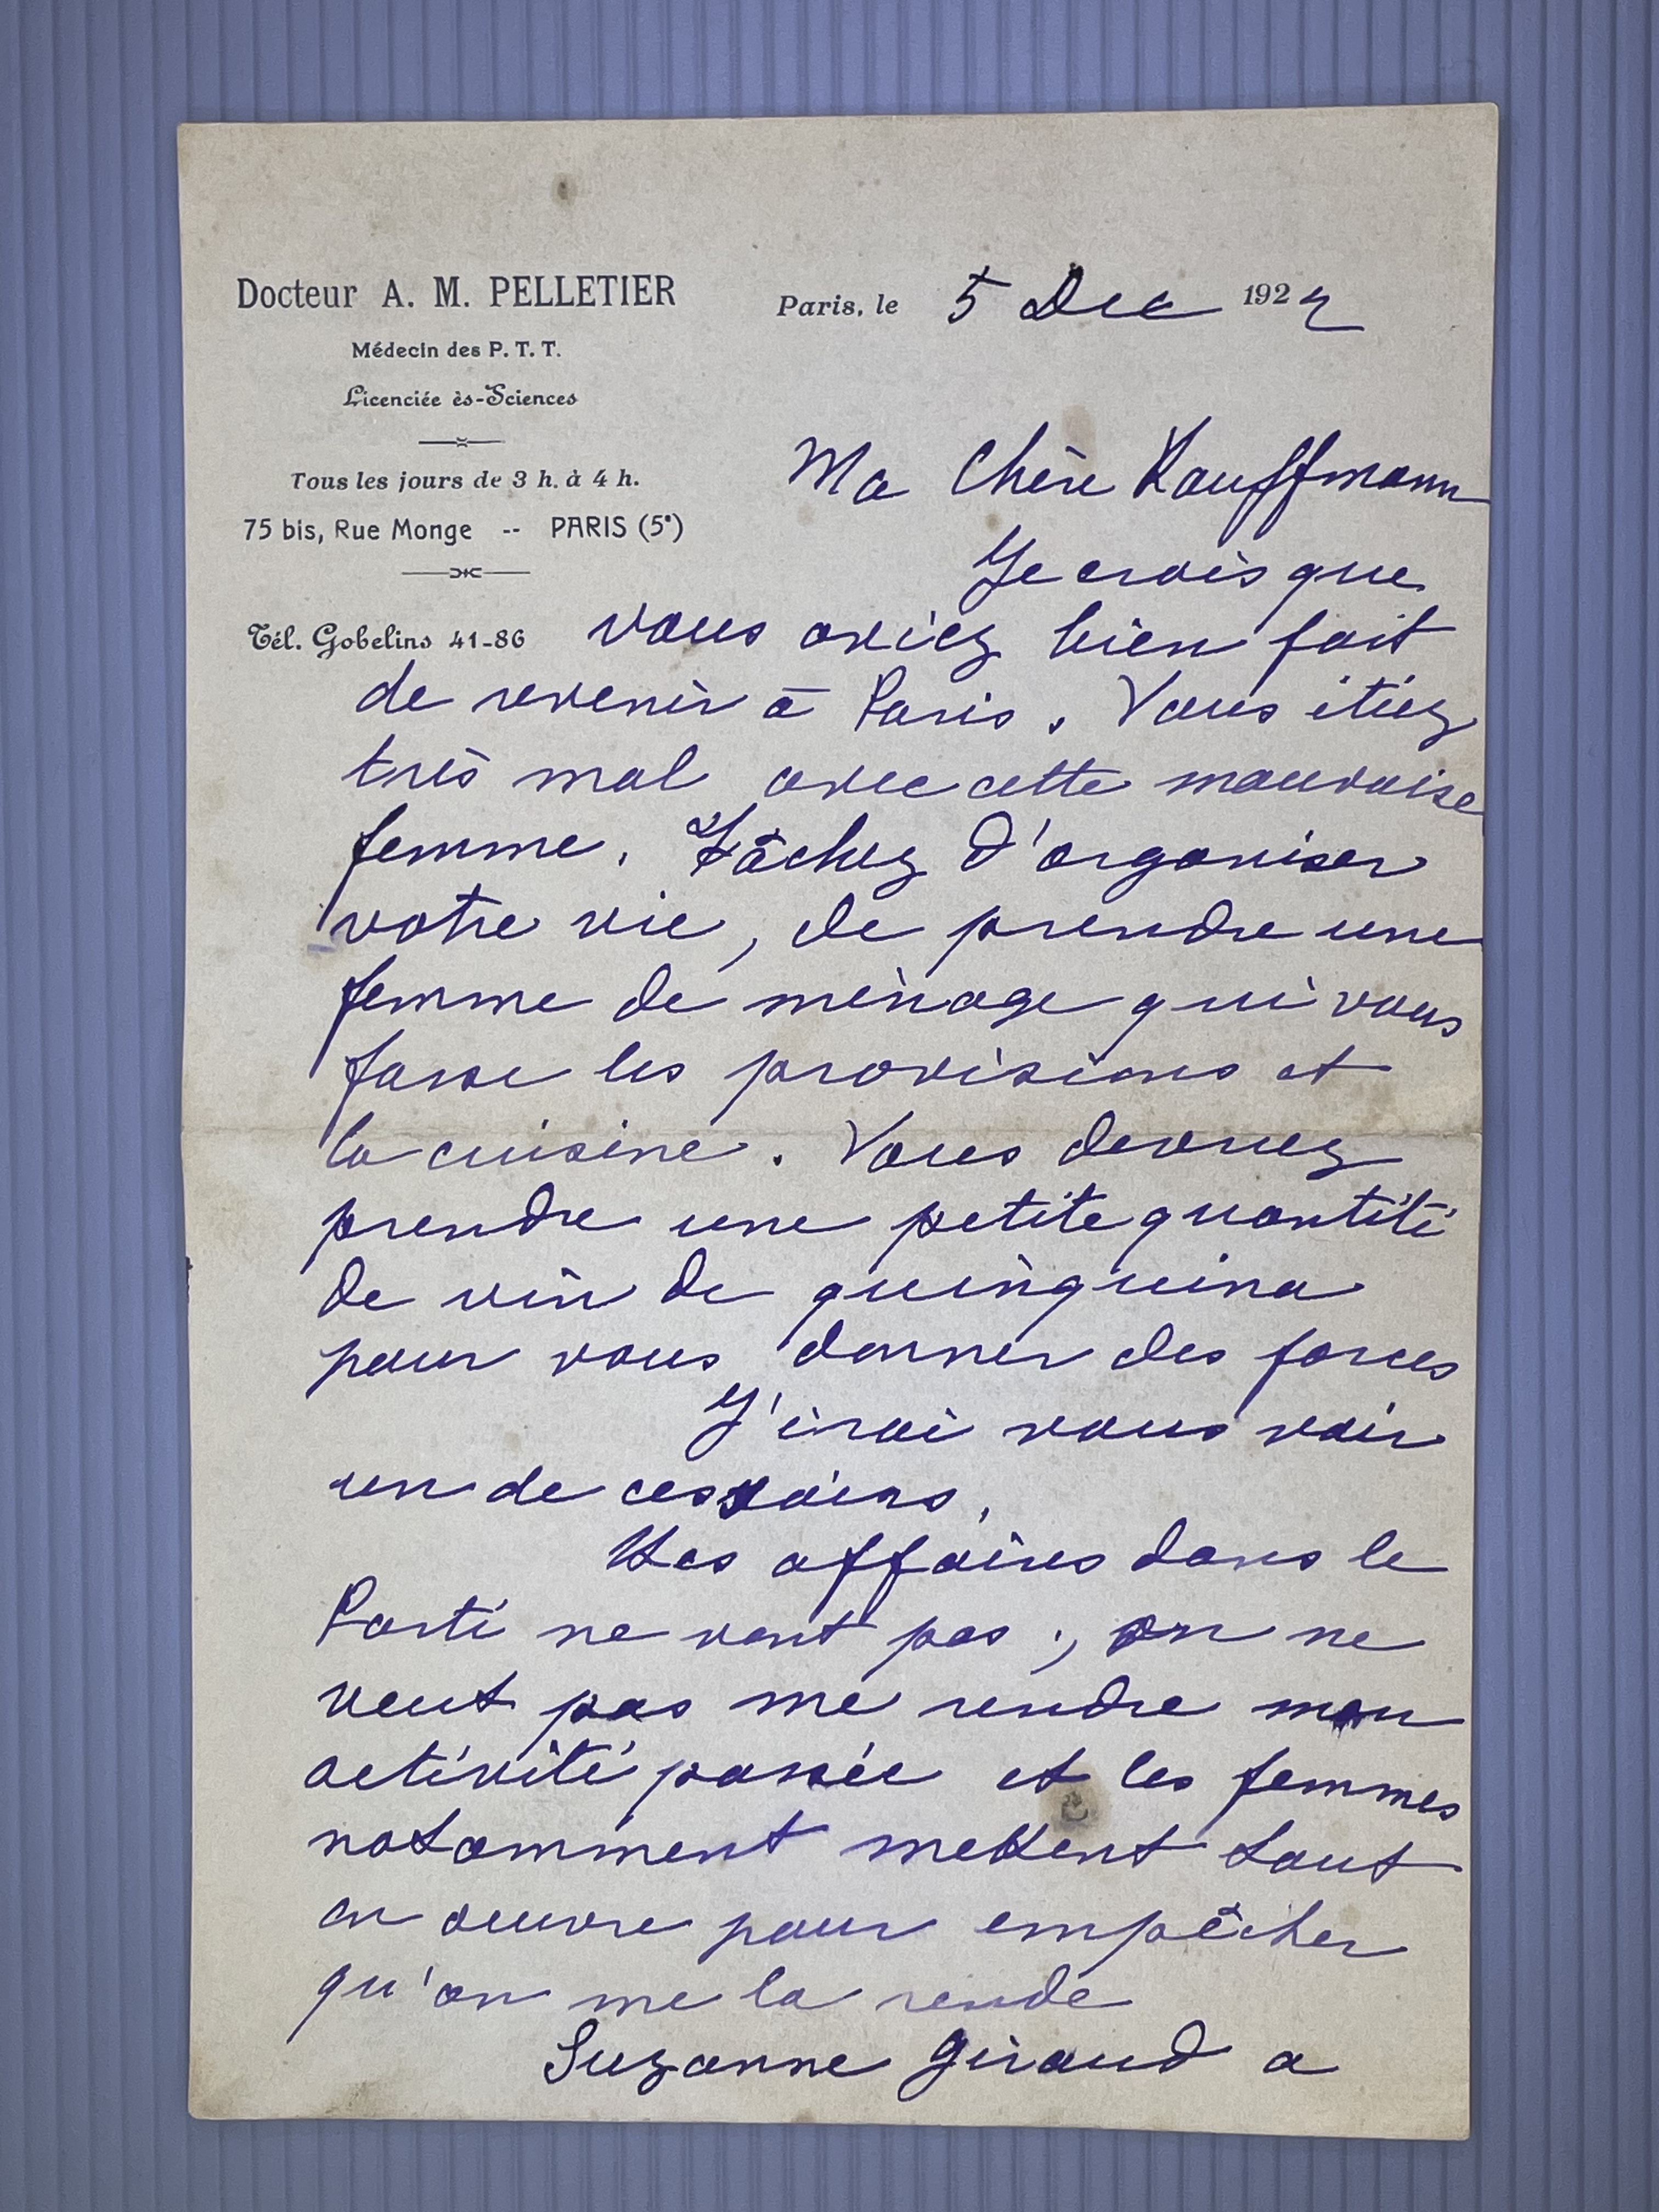 Docteur A. M. PELLETIER
Médecin des P. T. T.
Licenciée ès-Sciences
Tous les jours de 3 h. à 4 h.
75 bis, Rue Monge -- PARIS (5e)
Tél. Gobelins 41-86
Paris, le 5 Dec 1922
Ma Chère Kauffmann
Je crois que
vous aviez bien fait
de revenir à Paris. Vous étiez
très mal avec cette mauvaise
femme. Tâchez d'organiser
votre vie, de prendre une
femme de ménage qui vous
fasse les provisions et
la cuisine. Vous devriez
prendre une petite quantité
de vin de quinquina
pour vous donner des forces
J'irai vous voir
un de ces soirs.
Les affaires dans le
Parti ne vont pas ; on ne
veut pas me rendre mon
activité passée et les femmes
notamment mettent tout
en œuvre pour empêcher
qu'on me la rende
Suzanne Giraud a